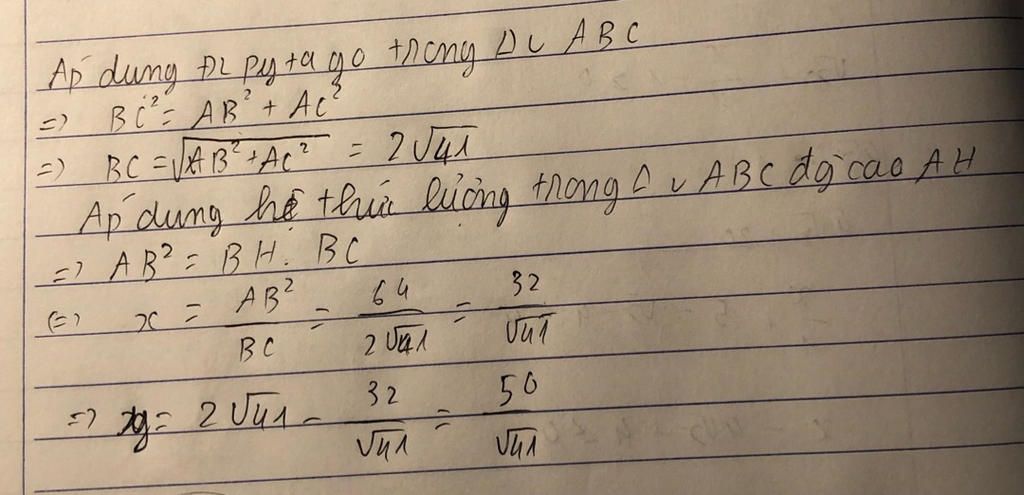 Áp dung ĐL pytago trong Δ v ABC
=> BC² = AB² + AC²
=> BC = √(AB² + AC²) = 2√41
Áp dung hệ thức lượng trong Δ v ABC đg cao AH
=> AB² = BH. BC
<=> x = AB²/BC = 64/2√41 = 32/√41
=> y = 2√41 - 32/√41 = 50/√41